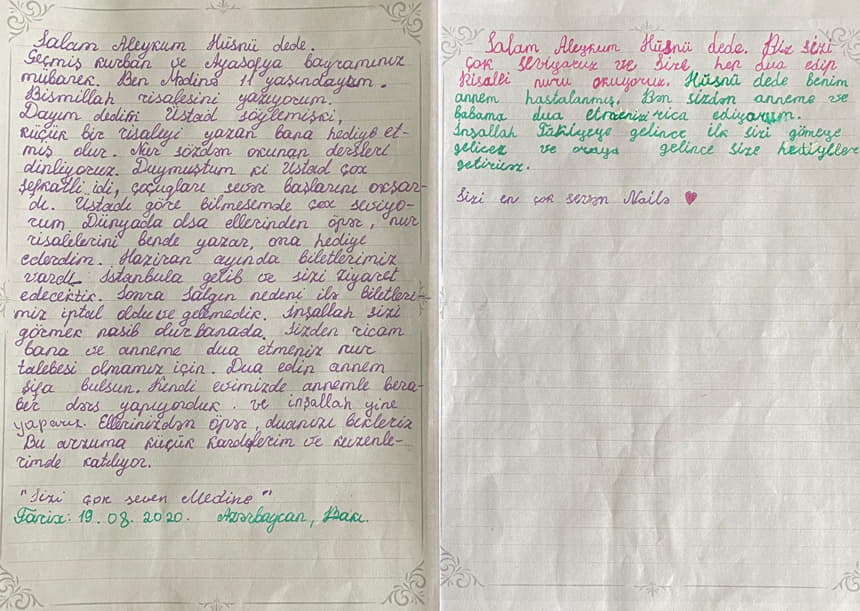 Salam Aleykum Hüsnü dede.
Geçmiş kurban ve Ayasofya bayramınız
mübarek. Ben Medine 11 yaşındayım.
Bismillah risalesini yazıyorum.
Dayım dediki Üstad söylemişki,
küçük bir risaleyi yazan bana hediye et-
miş olur. Nur sözdən okunan dersleri
dinliyoruz. Duymuştum ki Üstad çox
şefkatli idi, çoçugları sever başlarını okşar-
dı. Üstadı göre bilmesemde çox seviyo-
rum. Dünyada olsa ellerinden öper, nur
risalelerini bende yazar, ona hediye
ederdim. Haziran ayında biletlerimiz
vardı. İstanbula gelib ve sizi ziyaret
edecektik. Sonra Salgın nedeni ilə biletleri-
miz iptal oldu ve gelemedik. İnşallah sizi
görmek nasib olur banada. Sizden ricam
bana ve anneme dua etmeniz nur
talebesi olmamız için. Dua edin annem
şifa bulsun. Kendi evimizde annemle bera-
ber dərs yapıyorduk. ve inşallah yine
yaparız. Ellerinizdən öper, duanızı bekleriz
Bu arzuma küçük kardeşlerim ve kuzenle-
rimde katılıyor.
"Sizi çok seven Medine"
Tarix: 19.08.2020. Azərbaycan, Bakı.
Salam Aleykum Hüsnü dede. Biz sizi
çok seviyoruz ve Size hep dua edip
Risalei nuru okuyoruz. Hüsnü dede benim
annem hastalanmış. Bən sizdən anneme ve
babama dua etmenizi rica ediyorum.
İnşallah Türkiyeye gelince ilk sizi görmeye
gelicez ve oraya gelince size hediyeler
getiririz.
Sizi en çok sevən Nailə